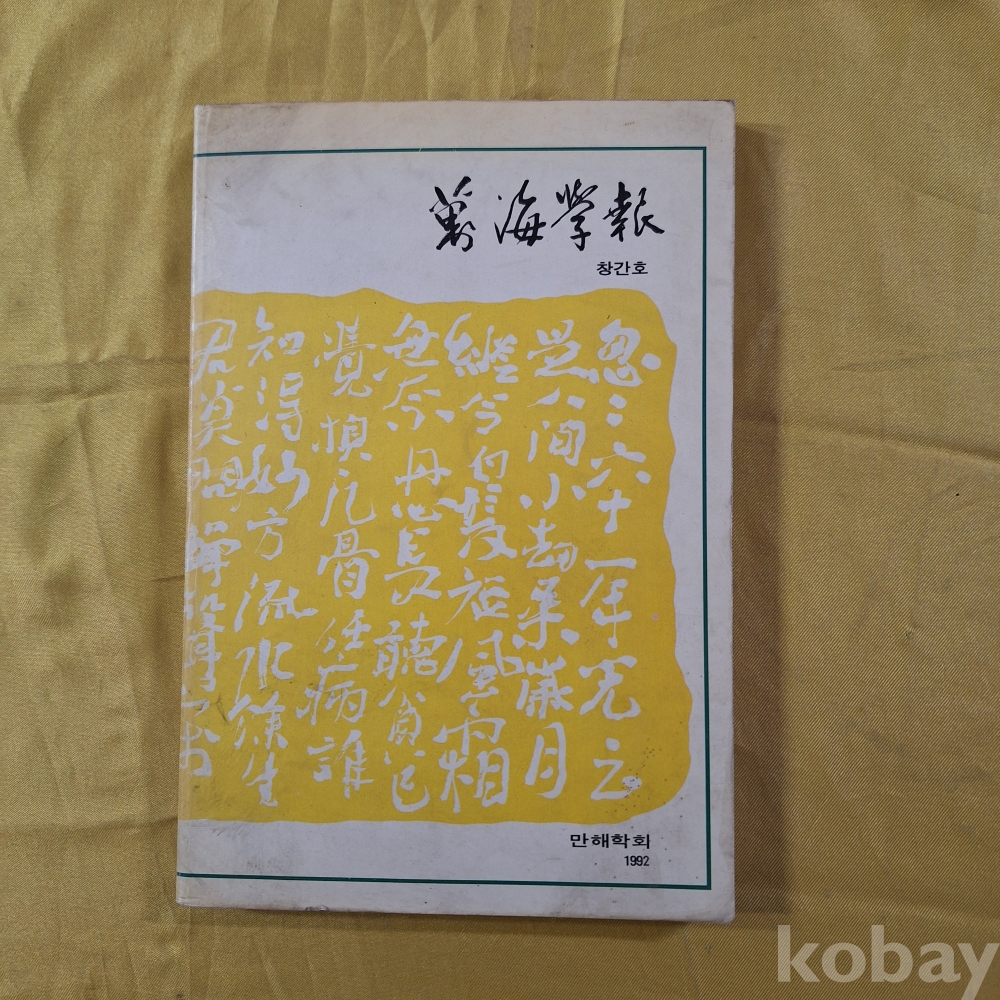 萬海學報
창간호
忽〻六十一年光云
是人間小劫桑歲月
縱令白髮短風霜
無奈丹心長聽貧已
覺換凡骨任病誰
知得妙方流水餘生
君莫問蟬聲萬
만해학회
1992
kobay